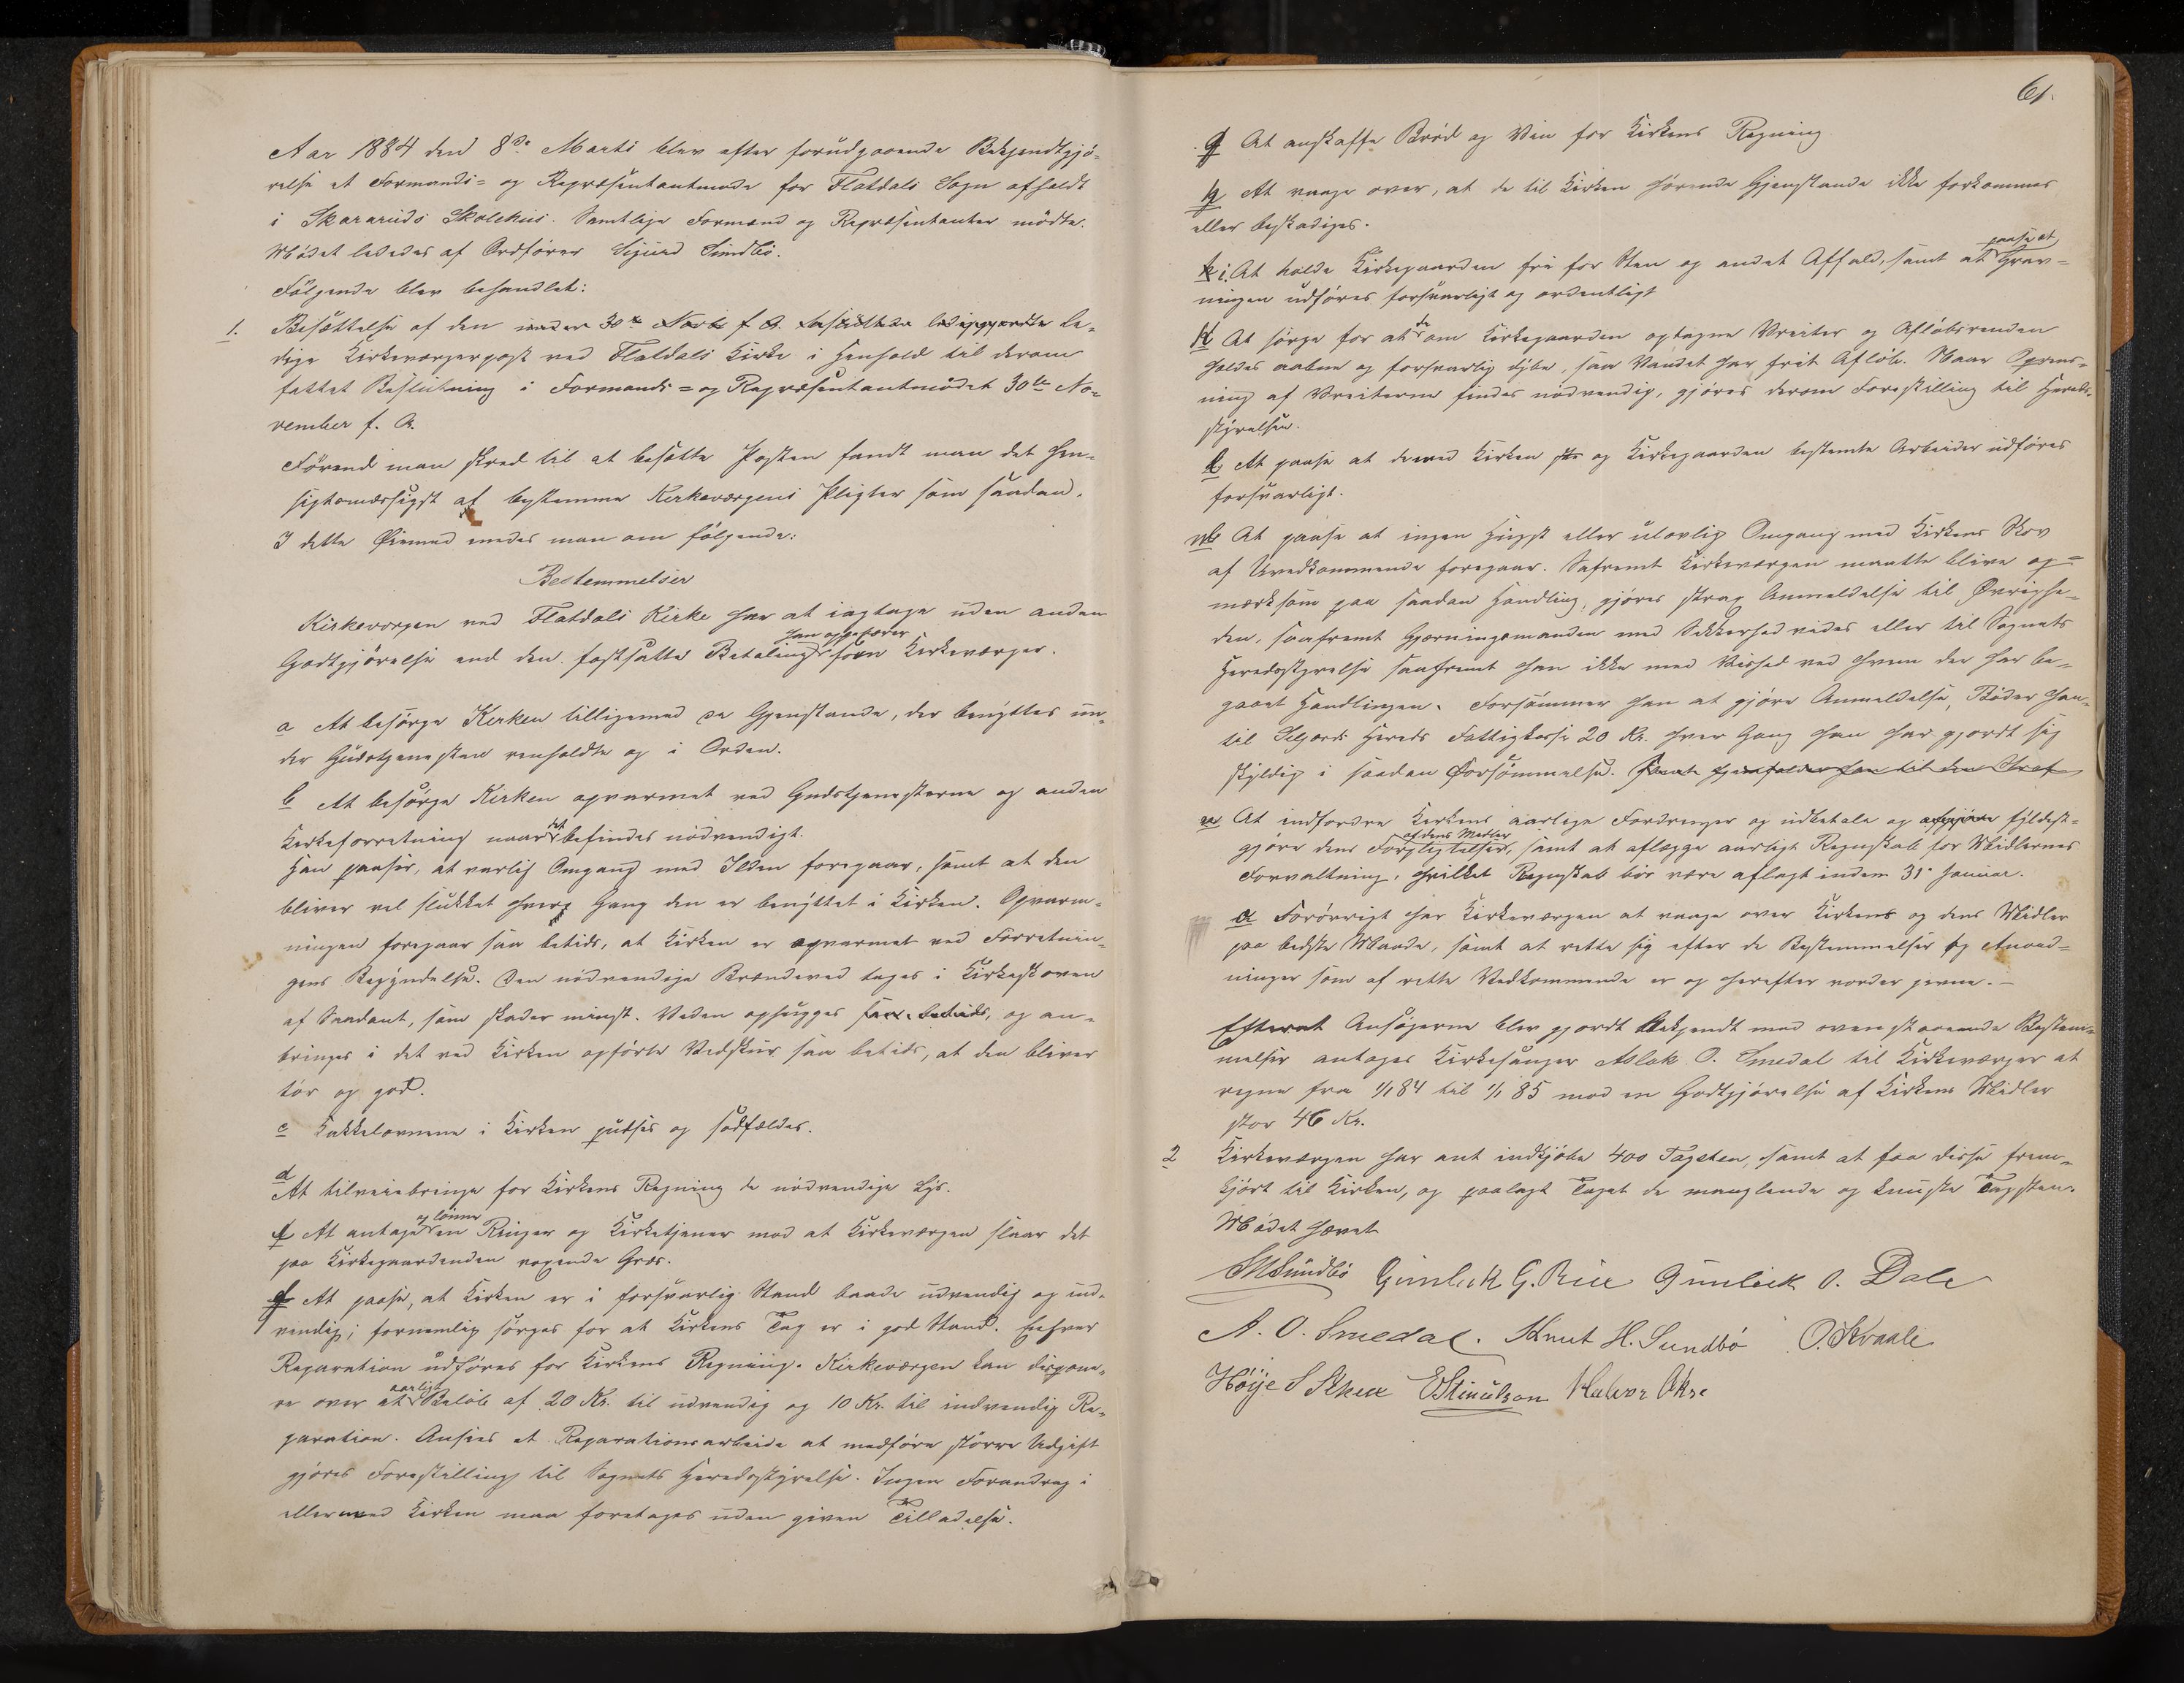 Aar 1884 den 8de Marts blev efter forudgaaende Bekjendtgjö-
relse et Formands- og Repræsentantmøde for Flatdals Sogn afholdt
i Skararuds Skolehus. Samtlige Formænd og Repræsentanter mödte.
Mödet lededes af Ordförer Sigurd Sundbö.
Fölgende blev behandlet:
1. Besættelse af den under 30te Novb f. A. le-
dige Kirkeværgerpost ved Flatdals Kirke i Henhold til derom
fattet Beslutning i Formands- og Repræsentantmödet 30te No-
vember f. A.
Förend man skred til at besætte Posten fandt man det hen-
sigtsmæssigst at bestemme Kirkeværgens Pligter som saadan.
I dette Öiemed enedes man om fölgende:
Bestemmelser
Kirkeværgen ved Flatdals Kirke har at iagttage uden anden
Godtgjörelse end den fastsatte Betaling han oppebærer som Kirkeværger.
a At besörge Kirken tilligemed de Gjenstande, der benyttes un-
der Gudstjenesten renholdte og i Orden.
b At besörge Kirken opvarmet ved Gudstjenesterne og anden
Kirkeforretning naar det befindes nödvendigt.
Han paaser, at varlig Omgang med Ilden foregaar, samt at den
bliver vel slukket hver Gang den er benyttet i Kirken. Opvarm-
ningen foregaar saa betids, at Kirken er opvarmet ved Forretnin-
gens Begyndelse. Den nödvendige Brændeved tages i Kirkeskoven
af Saadant, som skader mindst. Veden ophugges saa betids, og an-
bringes i det ved Kirken opförte Vedskur saa betids, at den bliver
tör og god.
c Kakkelovnene i Kirken pudses og sodfældes.
d At tilveiebringe for Kirkens Regning de nödvendige Lys.
e At antage og lönne en Ringer og Kirketjener mod at Kirkeværgen slaar det
paa Kirkegaarden voxende Græs.
f At paase, at Kirken er i forsvarlig Stand baade udvendig og ind-
vendig; fornemlig sörges for at Kirkens Tag er i god Stand. Enhver
Reparation udföres for Kirkens Regning. Kirkeværgen kan dispone-
re over et aarligt Belöb af 20 Kr. til udvendig og 10 Kr. til indvendig Re-
paration. Ansees et Reparationsarbeide at medföre större Udgift
gjöres Forestilling til Sognets Heredsstyrelse. Ingen Forandrag i
eller ved Kirken maa foretages uden given Tilladelse.
61.
g At anskaffe Bröd og Vin for Kirkens Regning
h At vaage over, at de til Kirken hörende Gjenstande ikke forkommes
eller beskadiges.
i. At holde Kirkegaarden fri for Sten og andet Affald, samt at paase at Grav-
ningen udföres forsvarligt og ordentligt
k At sörge for at de om Kirkegaarden optagne Veiter og Aflöbsrenden
holdes aabne og forsvarlig dybe, saa Vandet har frit Aflöb. Naar Oprens-
ning af Veiterne findes nödvendig, gjöres derom Forestilling til Hereds-
styrelsen.
l At paase at de ved Kirken og Kirkegaarden bestemte Arbeider udföres
forsvarligt.
m At paase at ingen Hugst eller ulovlig Omgang med Kirkens Skov
af Uvedkommende foregaar. Safremt Kirkeværgen maatte blive op-
mærksom paa saadan Handling, gjöres strax Anmeldelse til Øvrighe-
den, saafremt Gjerningsmanden med Sikkerhed vides eller til Sognets
Heredsstyrelse saafremt han ikke med Vished ved hvem der har be-
gaaet Handlingen. Forsömmer han at gjöre Anmeldelse, Böder han
til Seljords Hereds Fattigkasse 20 Kr. hver Gang han har gjordt sig
skyldig i saadan Forsömmelse. hjemfalder han til den Straf
n At indfordre Kirkens aarlige Fordringer og udbetale og afgjöre fyldest-
gjöre dens Forpligtelser af dens Midler, samt at aflægge aarligt Regnskab for Midlernes
Forvaltning, hvilket Regnskab bör være aflagt inden 31. Januar.
o Forövrigt har Kirkeværgen at vaage over Kirkens og dens Midler
paa bedste Maade, samt at rette sig efter de Bestemmelser og Anord-
ninger som af rette Vedkommende er og herefter vorder givne.-
Efterat Ansögerne blev gjordt bekjendt med ovenstaaende Bestem-
melser antoges Kirkesanger Aslak O. Smedal til Kirkeværger at
regne fra 1/1 84 til 1/1 85 mod en Godtgjörelse af Kirkens Midler
stor 46 Kr.
2 Kirkeværgen har ant indkjöbe 400 Tagsten, samt at faa disse frem-
kjört til Kirken, og paalagt Taget de manglende og knuste Tagsten.
Mödet hævet
SSundbö Gunleik G. Rue Gunleik O. Dale
A. O. Smedal. Knut H. Sundbö O. Kvaale
Höije S EStinulson Halvor Økre